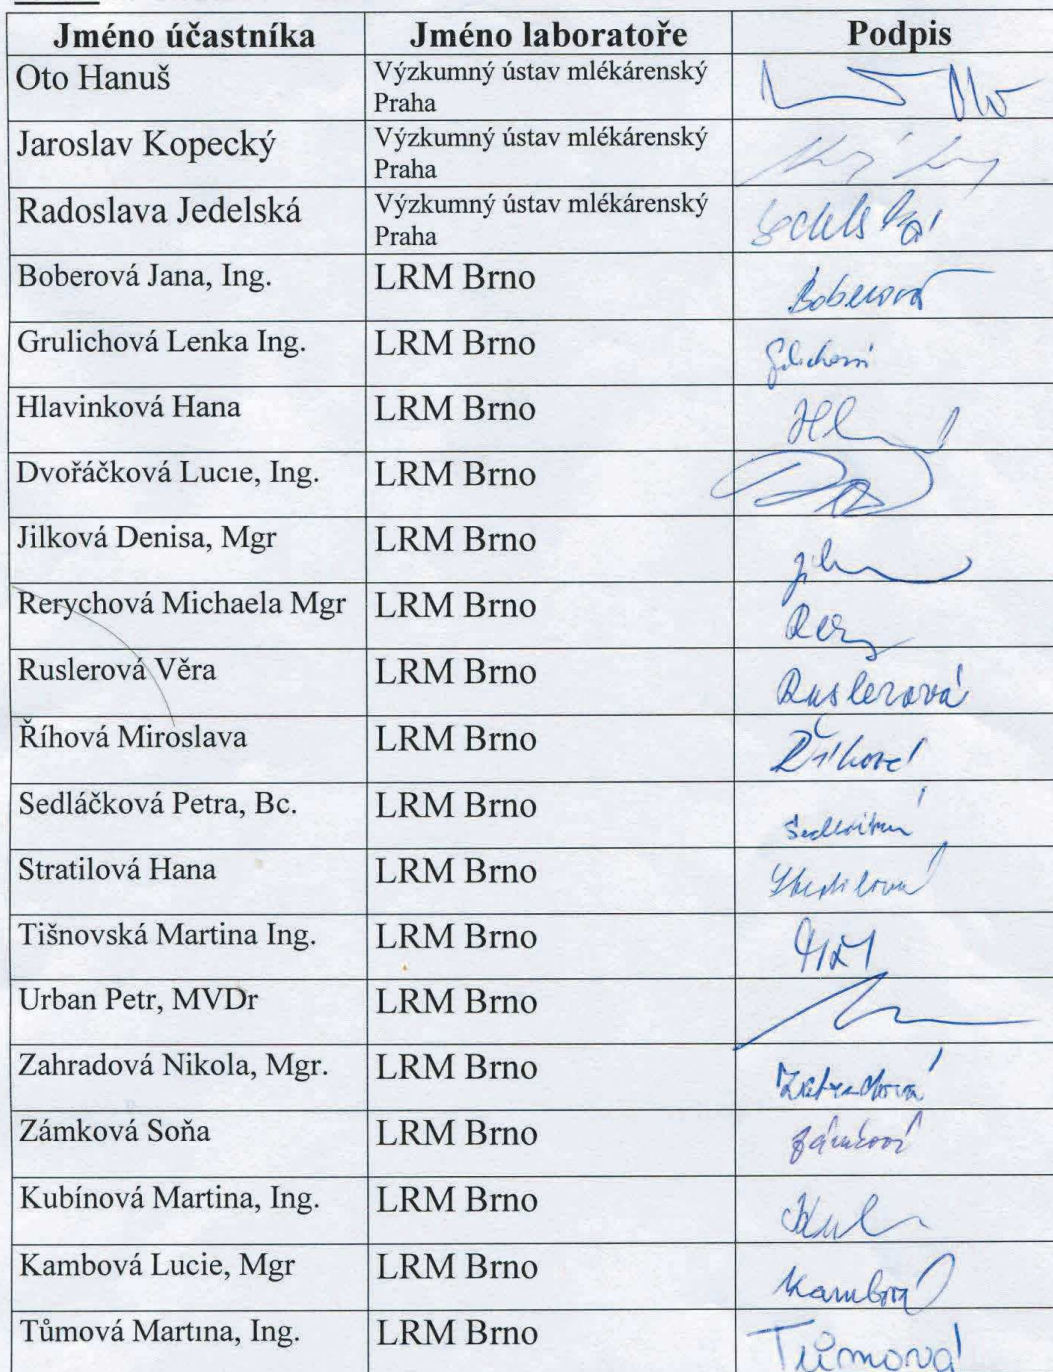 Jméno účastníka Jméno laboratoře Podpis
Oto Hanuš Výzkumný ústav mlékárenský
Praha
Jaroslav Kopecký Výzkumný ústav mlékárenský
Praha
Radoslava Jedelská Výzkumný ústav mlékárenský
Praha
Boberová Jana, Ing. LRM Brno Boberová
Grulichová Lenka Ing. LRM Brno
Hlavinková Hana LRM Brno
Dvořáčková Lucie, Ing. LRM Brno
Jilková Denisa, Mgr LRM Brno
Rerychová Michaela Mgr LRM Brno
Ruslerová Věra LRM Brno Ruslerová
Říhová Miroslava LRM Brno Říhová
Sedláčková Petra, Bc. LRM Brno
Stratilová Hana LRM Brno Stratilová
Tišnovská Martina Ing. LRM Brno
Urban Petr, MVDr LRM Brno
Zahradová Nikola, Mgr. LRM Brno Zahradová
Zámková Soňa LRM Brno Zámková
Kubínová Martina, Ing. LRM Brno
Kambová Lucie, Mgr LRM Brno Kambová
Tůmová Martina, Ing. LRM Brno Tůmová